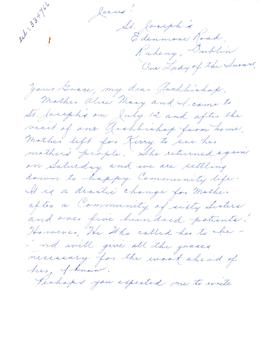 Jesus!
St. Joseph's
Edenmore Road,
Raheny, Dublin
Our Lady of the Snows.
Your Grace, my dear Archbishop,
Mother Alice Mary and I came to
St. Joseph's on July 12 and after the
visit of our Archbishop from home,
Mother left for Kerry to see his
mother's people. She returned again
on Saturday and we are settling
down to happy Community life.
It is a drastic change for Mother
after a Community of sixty Sisters
and over five hundred patients!
However, He Who called her to obe-
will give all the graces
necessary for the work ahead of
her, I know.
Perhaps you expected me to write